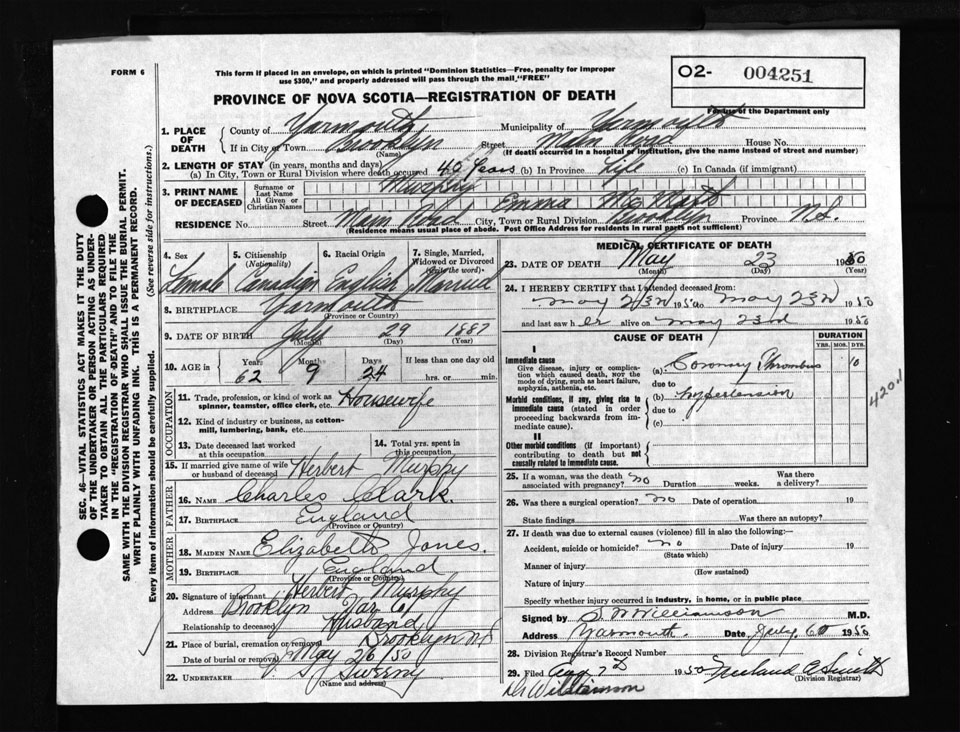 FORM 6
This form if placed in an envelope, on which is printed "Dominion Statistics—Free, penalty for improper
use $300," and properly addressed will pass through the mail, "FREE"
PROVINCE OF NOVA SCOTIA—REGISTRATION OF DEATH
O2- 004251
For use of the Department only
1. PLACE OF DEATH
County of Yarmouth Municipality of Yarmouth
If in City or Town Brooklyn Street Main Road House No.
(Name) (If death occurred in a hospital or institution, give the name instead of street and number)
2. LENGTH OF STAY (in years, months and days)
(a) In City, Town or Rural Division where death occurred 40 Years (b) In Province Life (c) In Canada (if immigrant)
3. PRINT NAME OF DECEASED
Surname or Last Name Murphy
All Given or Christian Names Emma
RESIDENCE No. Street Main Road City, Town or Rural Division Brooklyn Province N.S.
(Residence means usual place of abode. Post Office Address for residents in rural parts not sufficient)
4. Sex 5. Citizenship (Nationality) 6. Racial Origin 7. Single, Married, Widowed or Divorced (Write the word)
Female Canadian English Married
8. BIRTHPLACE Yarmouth
(Province or Country)
9. DATE OF BIRTH July 29 1887
(Month) (Day) (Year)
10. AGE in Years Months Days If less than one day old
62 9 24 hrs. or min.
OCCUPATION
11. Trade, profession, or kind of work as Housewife
spinner, teamster, office clerk, etc.
12. Kind of industry or business, as cotton-
mill, lumbering, bank, etc.
13. Date deceased last worked at this occupation
14. Total yrs. spent in this occupation
15. If married give name of wife or husband of deceased Herbert Murphy
FATHER
16. NAME Charles Clark.
17. BIRTHPLACE England
(Province or Country)
MOTHER
18. MAIDEN NAME Elizabeth Jones.
19. BIRTHPLACE England
(Province or Country)
20. Signature of informant Herbert Murphy
Address Brooklyn Yar Co
Relationship to deceased Husband
21. Place of burial, cremation or removal Brooklyn NS
Date of burial or removal May 26/50
22. UNDERTAKER V. S. Sweeny
(Name and address)
MEDICAL CERTIFICATE OF DEATH
23. DATE OF DEATH May 23 1950
(Month) (Day) (Year)
24. I HEREBY CERTIFY that I attended deceased from:
May 23rd 1950 to May 23rd 1950
and last saw her alive on May 23rd 1950
CAUSE OF DEATH
DURATION
YRS. MOS. DYS.
I
Immediate cause
Give disease, injury or complication which caused death, not the mode of dying, such as heart failure, asphyxia, asthenia, etc.
(a) Coronary Thrombus 10
due to
Morbid conditions, if any, giving rise to immediate cause (stated in order proceeding backwards from immediate cause).
(b) hypertension
due to
(c)
420.1
II
Other morbid conditions (if important) contributing to death but not causally related to immediate cause.
25. If a woman, was the death associated with pregnancy? no Duration weeks. Was there a delivery?
26. Was there a surgical operation? no Date of operation 19
State findings Was there an autopsy?
27. If death was due to external causes (violence) fill in also the following:—
Accident, suicide or homicide? no Date of injury 19
(State which)
Manner of injury
(How sustained)
Nature of injury
Specify whether injury occurred in industry, in home, or in public place
Signed by S W Williamson M.D.
Address Yarmouth. Date July 6 1950
28. Division Registrar's Record Number
29. Filed Aug 7th 1950
(Division Registrar)
Dr Williamson
SEC. 46—VITAL STATISTICS ACT MAKES IT THE DUTY
OF THE UNDERTAKER OR PERSON ACTING AS UNDER-
TAKER TO OBTAIN ALL THE PARTICULARS REQUIRED
IN THE "REGISTRATION OF DEATH" AND TO FILE THE
SAME WITH THE DIVISION REGISTRAR WHO SHALL ISSUE THE BURIAL PERMIT.
WRITE PLAINLY WITH UNFADING INK. THIS IS A PERMANENT RECORD.
Every item of information should be carefully supplied. (See reverse side for instructions.)